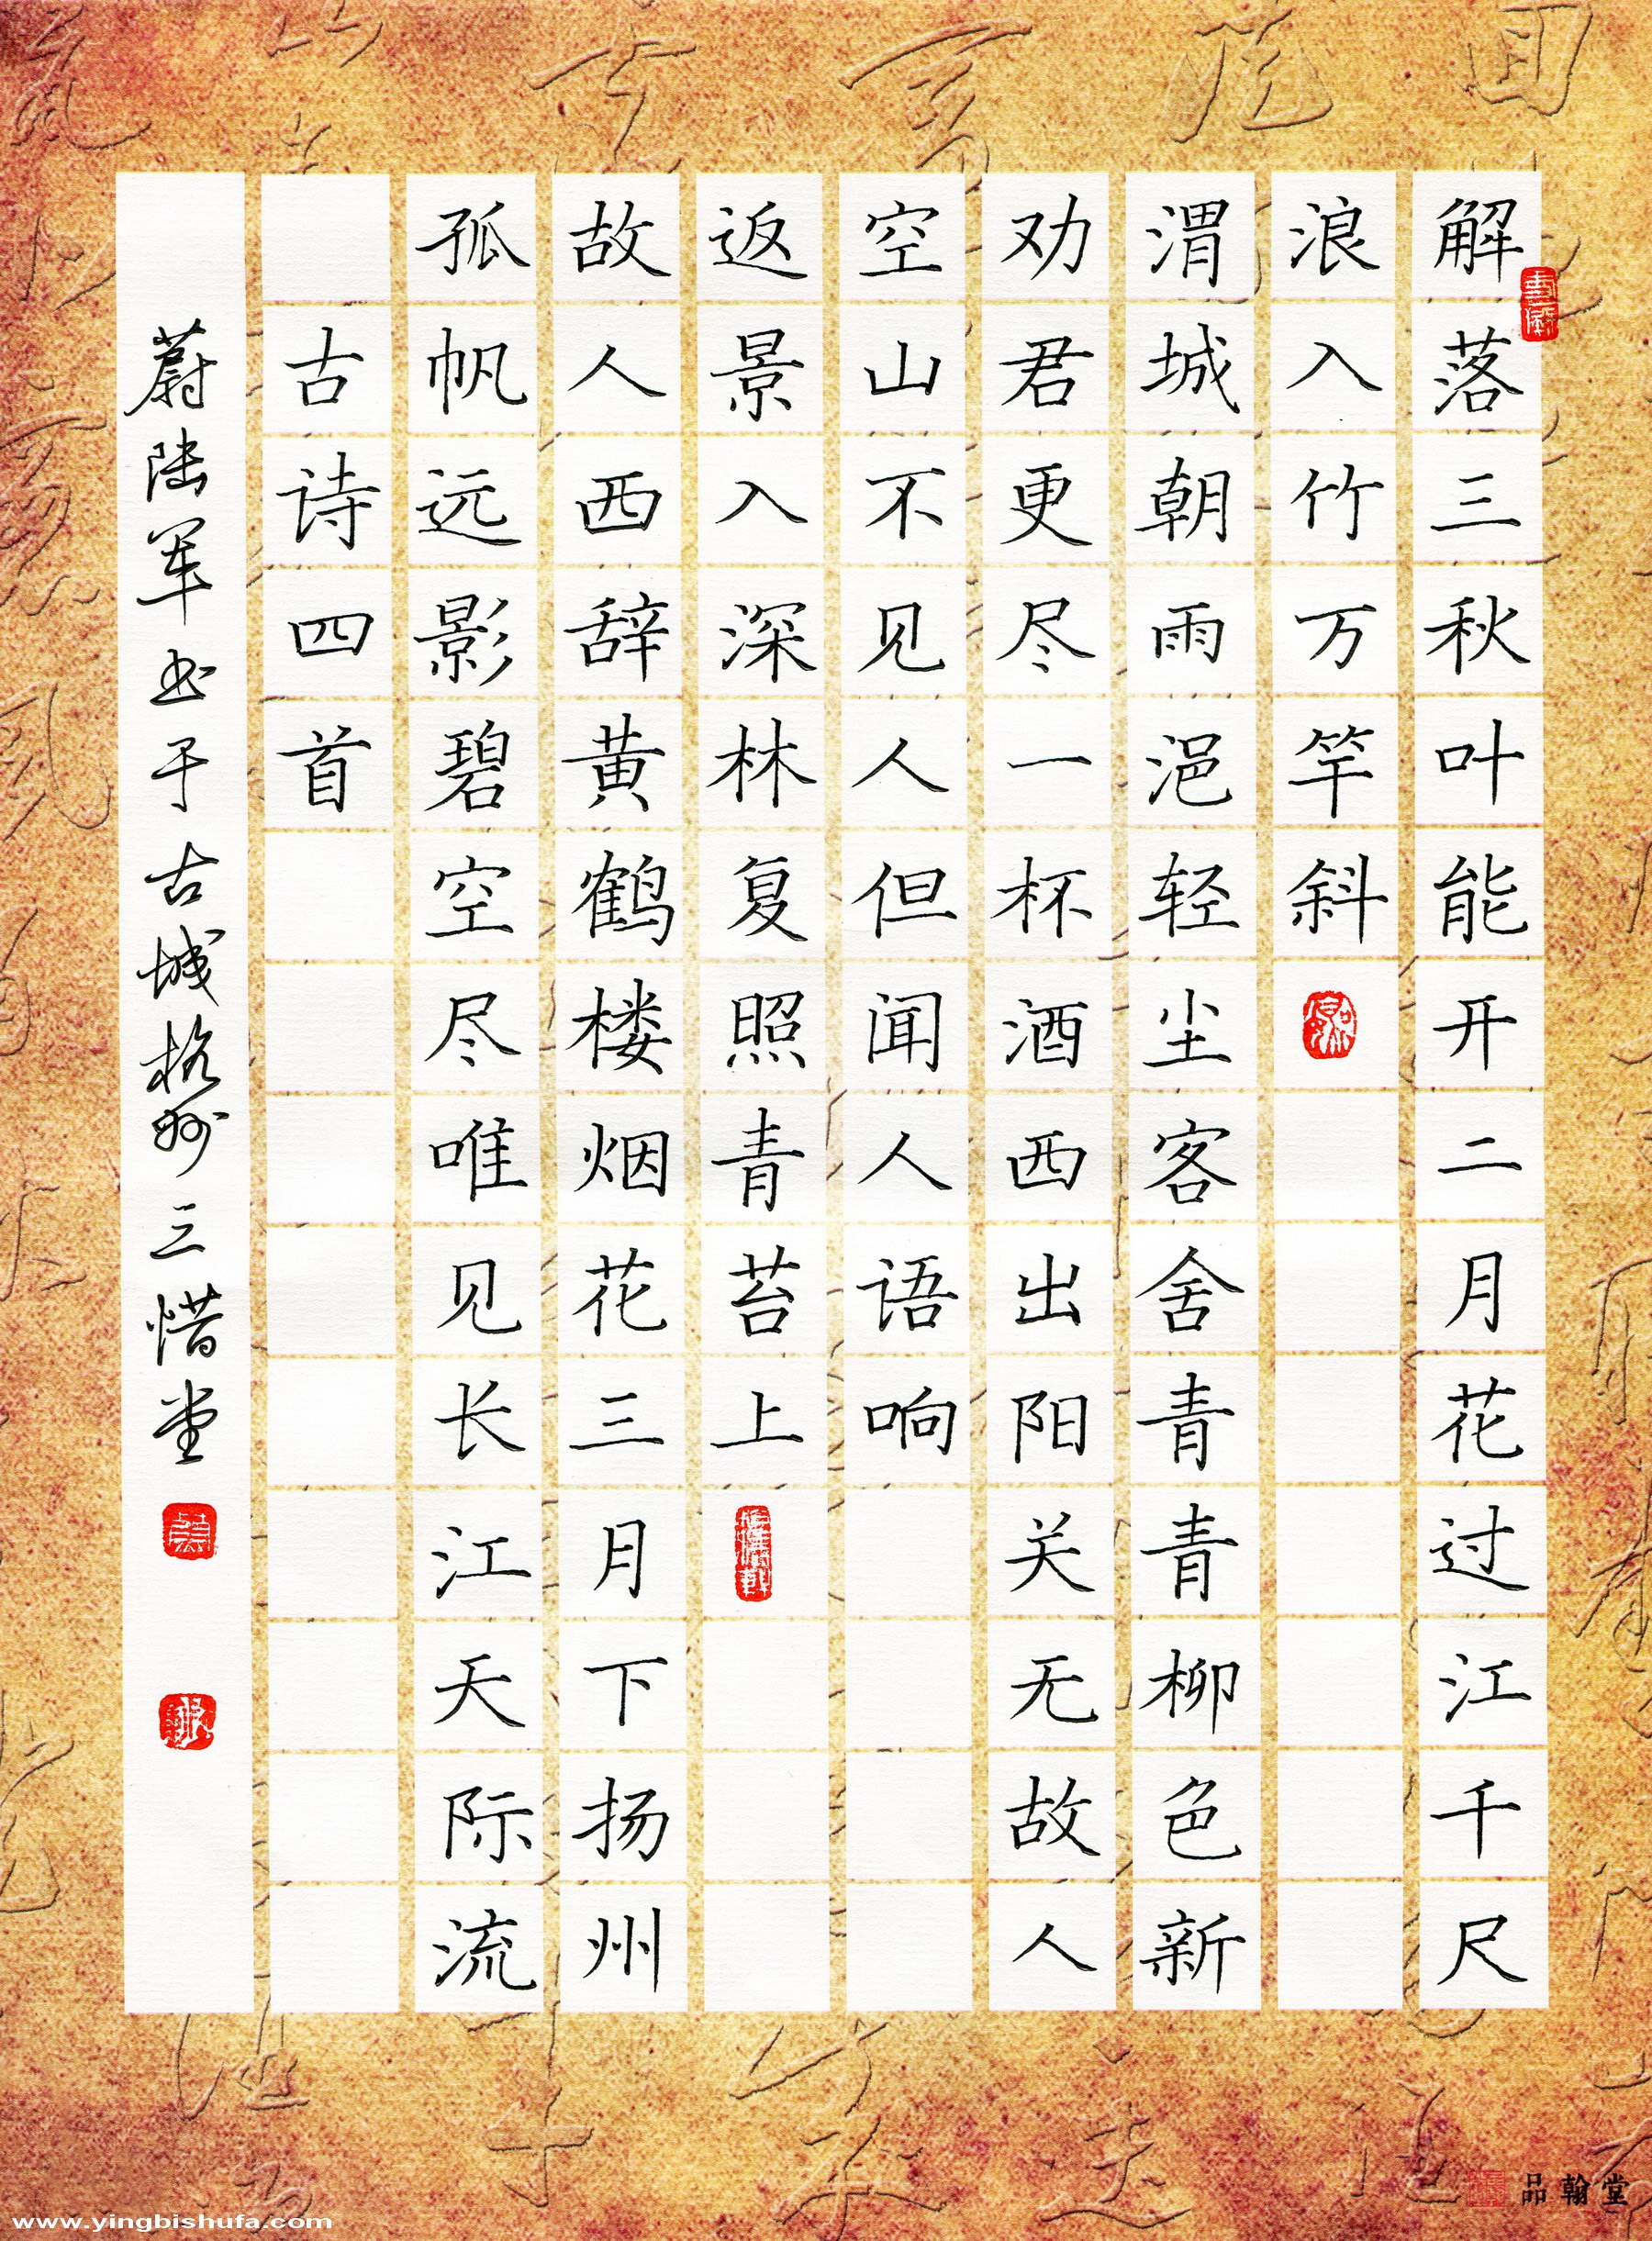 解落三秋叶能开二月花过江千尺
浪入竹万竿斜
渭城朝雨浥轻尘客舍青青柳色新
劝君更尽一杯酒西出阳关无故人
空山不见人但闻人语响
返景入深林复照青苔上
故人西辞黄鹤楼烟花三月下扬州
孤帆远影碧空尽唯见长江天际流
古诗四首
蔚陆军书于古城格州三惜堂
品翰堂
www.yingbishufa.com